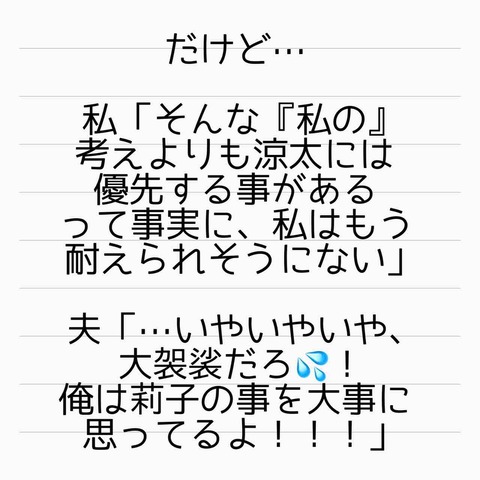 だけど…
私「そんな『私の』
考えよりも涼太には
優先する事がある
って事実に、私はもう
耐えられそうにない」
夫「…いやいやいや、
大袈裟だろ💦！
俺は莉子の事を大事に
思ってるよ！！！」